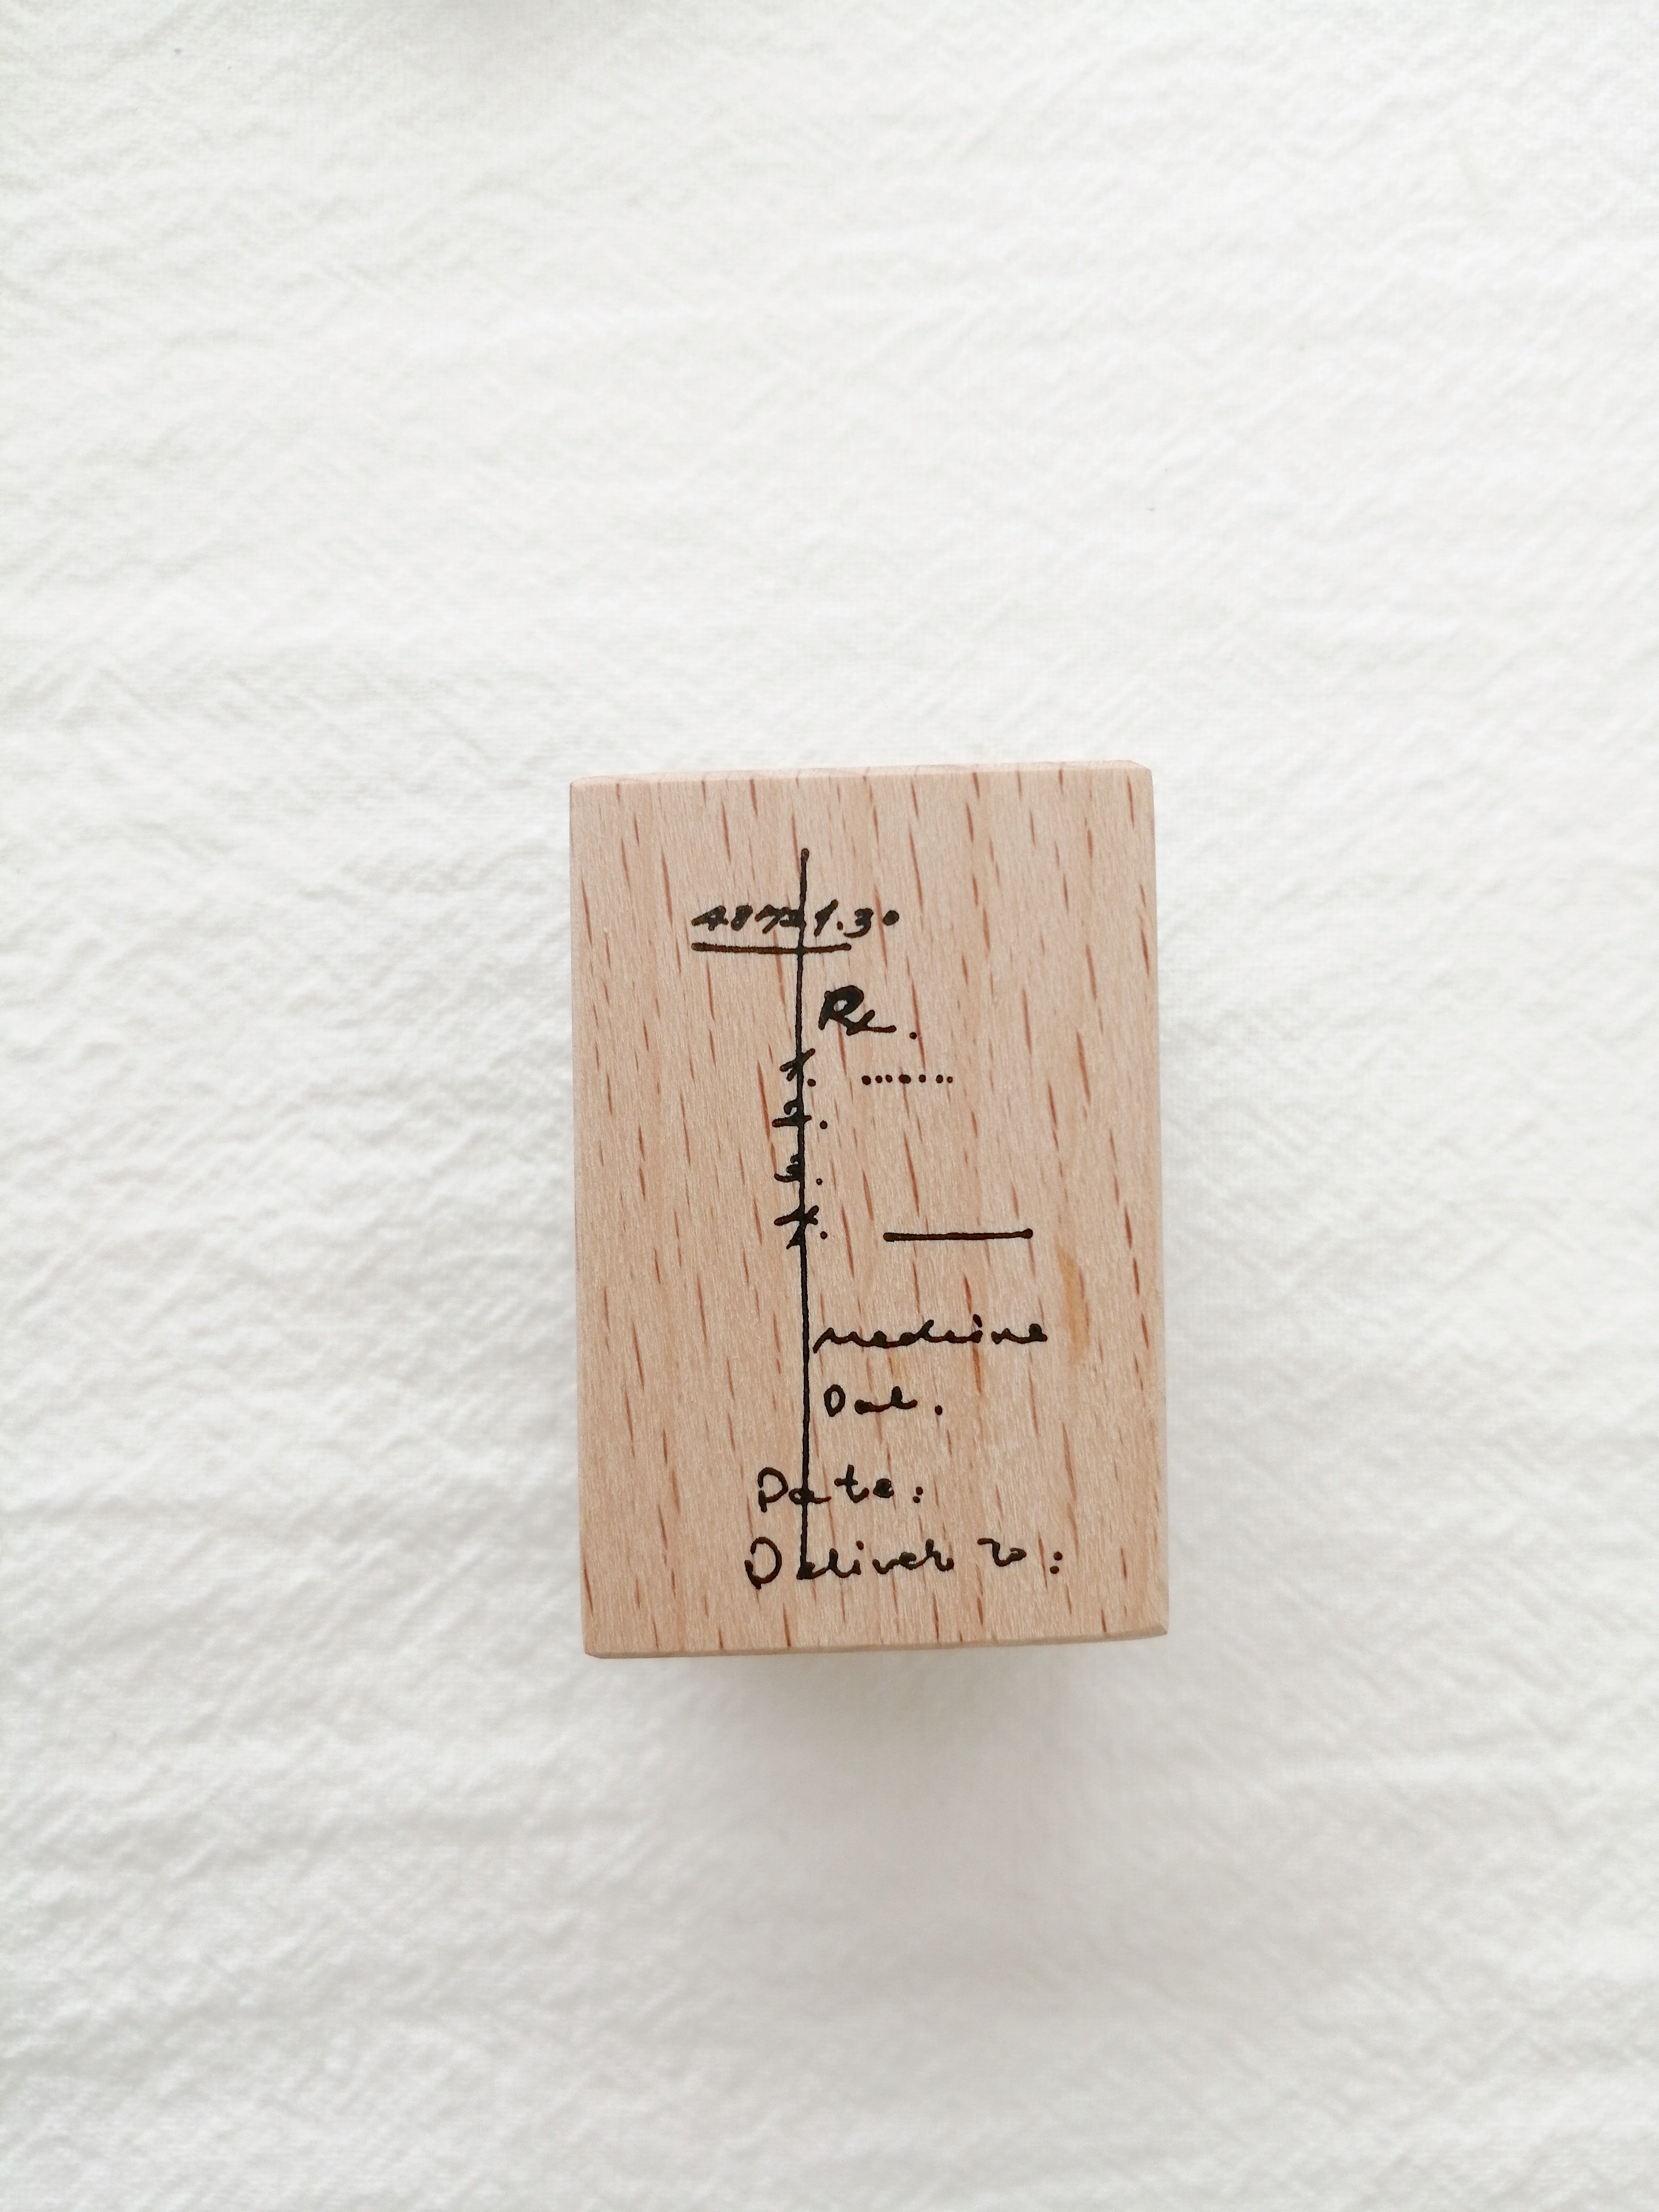 48721.30
Rx.
1. .......
2.
3.
4.
medicine
Dat.
Date:
Deliver to: